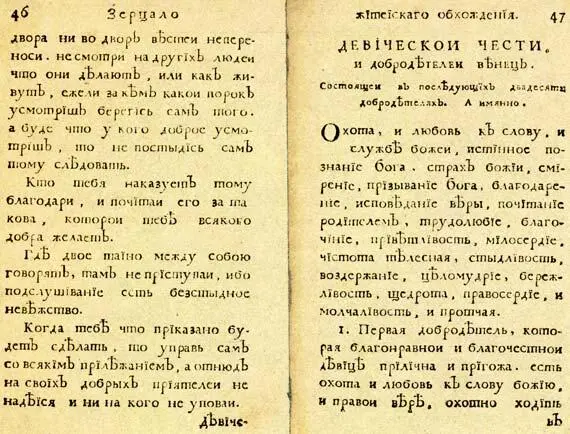 46 Зерцало
двора ни во дворъ вѣстеи непере-
носи. не смотри на другіхъ людеи
что они дѣлаютъ, или какъ жи-
вутъ, ежели за кѣмъ какои порокъ
усмотрішъ берегісь самъ того.
а буде что у кого доброе усмо-
трішъ, то не постыдісь самъ
тому слѣдовать.
Кто тебя наказуетъ тому
благодари, и почітаи его за та
кова, которои тебѣ всякого
добра желаетъ.
Гдѣ двое таіно между собою
говорятъ, тамъ не пріступаи, ибо
подслушіваніе есть безстыдное
невѣжство.
Когда тебѣ что пріказано бу-
детъ сдѣлать, то управь самъ
со всякімъ прілѣжаніемъ, а отнюдь
на своіхъ добрыхъ пріятелеи не
надѣіся и ни на кого не уповаи.
Дѣвіче-
жітеіскаго обхожденія. 47
ДЕВІЧЕСКОИ ЧЕСТИ,
И ДОБРОДѢТЕЛЕИ ВѢНЕЦЪ.
Состоящеи въ послѣдующіхъ двадесяти
добродѣтеляхъ. А имянно.
Охота, и любовь къ слову, и
службѣ божеи, истінное по-
знаніе бога. страхъ божіи, смі-
реніе, прізываніе бога, благодаре-
ніе, исповѣданіе вѣры, почітаніе
родітелемъ, трудолюбіе, благо-
чініе, прівѣтлівость, мілосердіе,
чістота тѣлесная, стыдлівость,
воздержаніе, цѣломудріе, береж-
лівость, щедрота, правосердіе, и
молчалівость, и протчая.
1. Первая добродѣтель, кото-
рая благонравнои и благочестнои
дѣвіцѣ прілічна и прігожа. есть
охота и любовь къ слову божію,
и правои вѣрѣ, охотно ходіть
въ